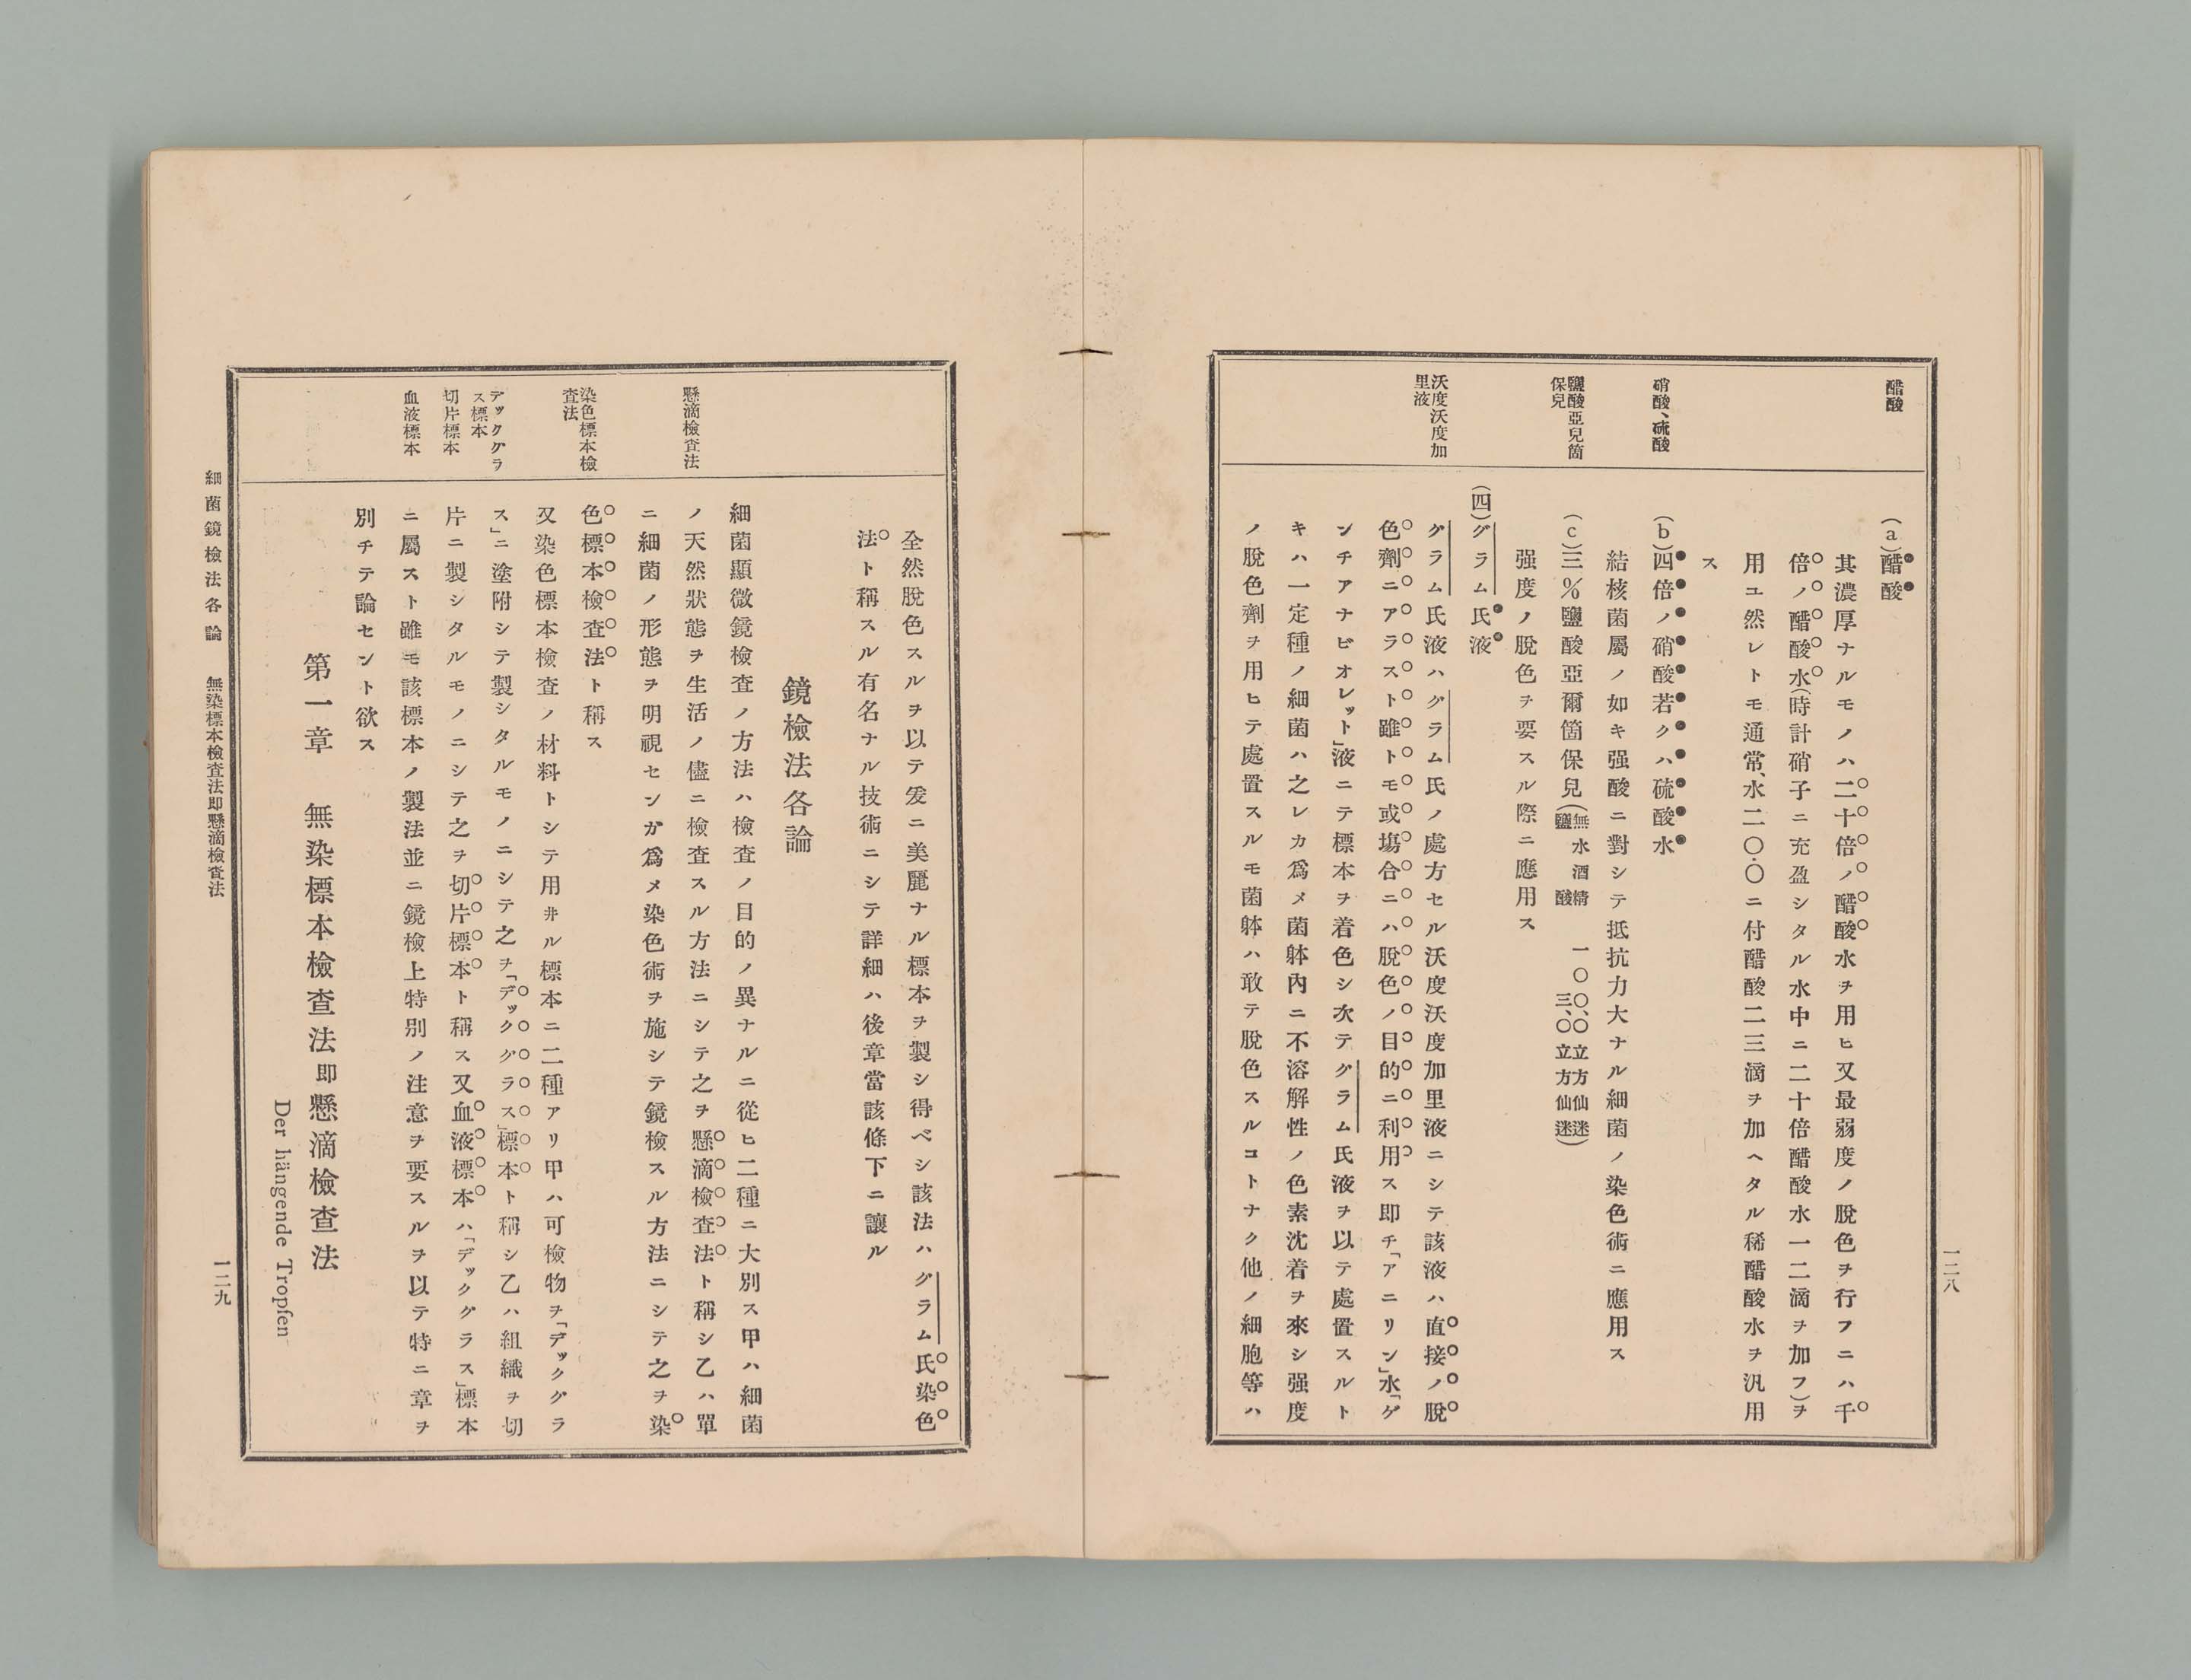 一二八
醋酸
硝酸、硫酸
鹽酸亞兒箇
保兒
沃度沃度加
里液
(a)醋酸
其濃厚ナルモノハ二十倍ノ醋酸水ヲ用ヒ又最弱度ノ脫色ヲ行フニハ千
倍ノ醋酸水(時計硝子ニ充盈シタル水中ニ二十倍醋酸水一二滴ヲ加フ)ヲ
用ユ然レトモ通常、水二〇・〇ニ付醋酸二三滴ヲ加ヘタル稀醋酸水ヲ汎用
ス
(b)四倍ノ硝酸若クハ硫酸水
結核菌屬ノ如キ强酸ニ對シテ抵抗力大ナル細菌ノ染色術ニ應用ス
(c)三%鹽酸亞爾箇保兒(無水酒精 一〇〇、〇立方仙迷
鹽酸 三、〇立方仙迷)
强度ノ脫色ヲ要スル際ニ應用ス
(四)グラム氏液
グラム氏液ハグラム氏ノ處方セル沃度沃度加里液ニシテ該液ハ直接ノ脫
色劑ニアラスト雖トモ或塲合ニハ脫色ノ目的ニ利用ス卽チ「アニリン」水「ゲ
ンチアナビオレット」液ニテ標本ヲ着色シ次テグラム氏液ヲ以テ處置スルト
キハ一定種ノ細菌ハ之レカ爲メ菌躰內ニ不溶解性ノ色素沈着ヲ來シ强度
ノ脫色劑ヲ用ヒテ處置スルモ菌躰ハ敢テ脫色スルコトナク他ノ細胞等ハ
懸滴檢査法
染色標本檢
査法
デックグラ
ス標本
切片標本
血液標本
全然脫色スルヲ以テ爰ニ美麗ナル標本ヲ製シ得ベシ該法ハグラム氏染色
法ト稱スル有名ナル技術ニシテ詳細ハ後章當該條下ニ讓ル
鏡檢法各論
細菌顯微鏡檢査ノ方法ハ檢査ノ目的ノ異ナルニ從ヒ二種ニ大別ス甲ハ細菌
ノ天然狀態ヲ生活ノ儘ニ檢査スル方法ニシテ之ヲ懸滴檢査法ト稱シ乙ハ單
ニ細菌ノ形態ヲ明視センカ爲メ染色術ヲ施シテ鏡檢スル方法ニシテ之ヲ染
色標本檢査法ト稱ス
又染色標本檢査ノ材料トシテ用ヰル標本ニ二種アリ甲ハ可檢物ヲ「デックグラ
ス」ニ塗附シテ製シタルモノニシテ之ヲ「デックグラス」標本ト稱シ乙ハ組織ヲ切
片ニ製シタルモノニシテ之ヲ切片標本ト稱ス又血液標本ハ「デックグラス」標本
ニ屬スト雖モ該標本ノ製法並ニ鏡檢上特別ノ注意ヲ要スルヲ以テ特ニ章ヲ
別チテ論セント欲ス
第一章 無染標本檢査法卽懸滴檢査法
Der hängende Tropfen
細菌鏡檢法各論 無染標本檢査法卽懸滴檢査法
一二九